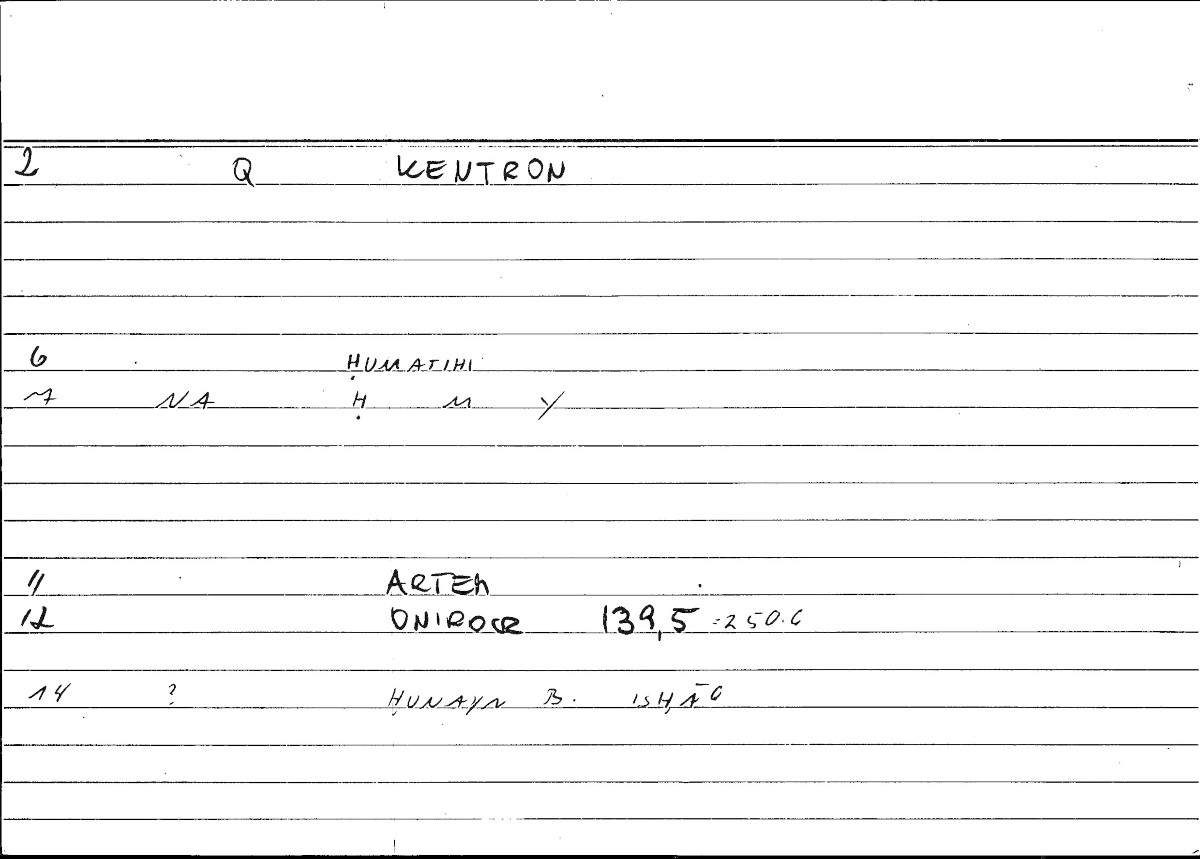 2 Q KENTRON
6 ḤUMATIHI
7 NA Ḥ M Y
11 ARTEM
12 ONIROCR 139,5 =250.6
14 ? ḤUNAYN B. ISḤĀQ